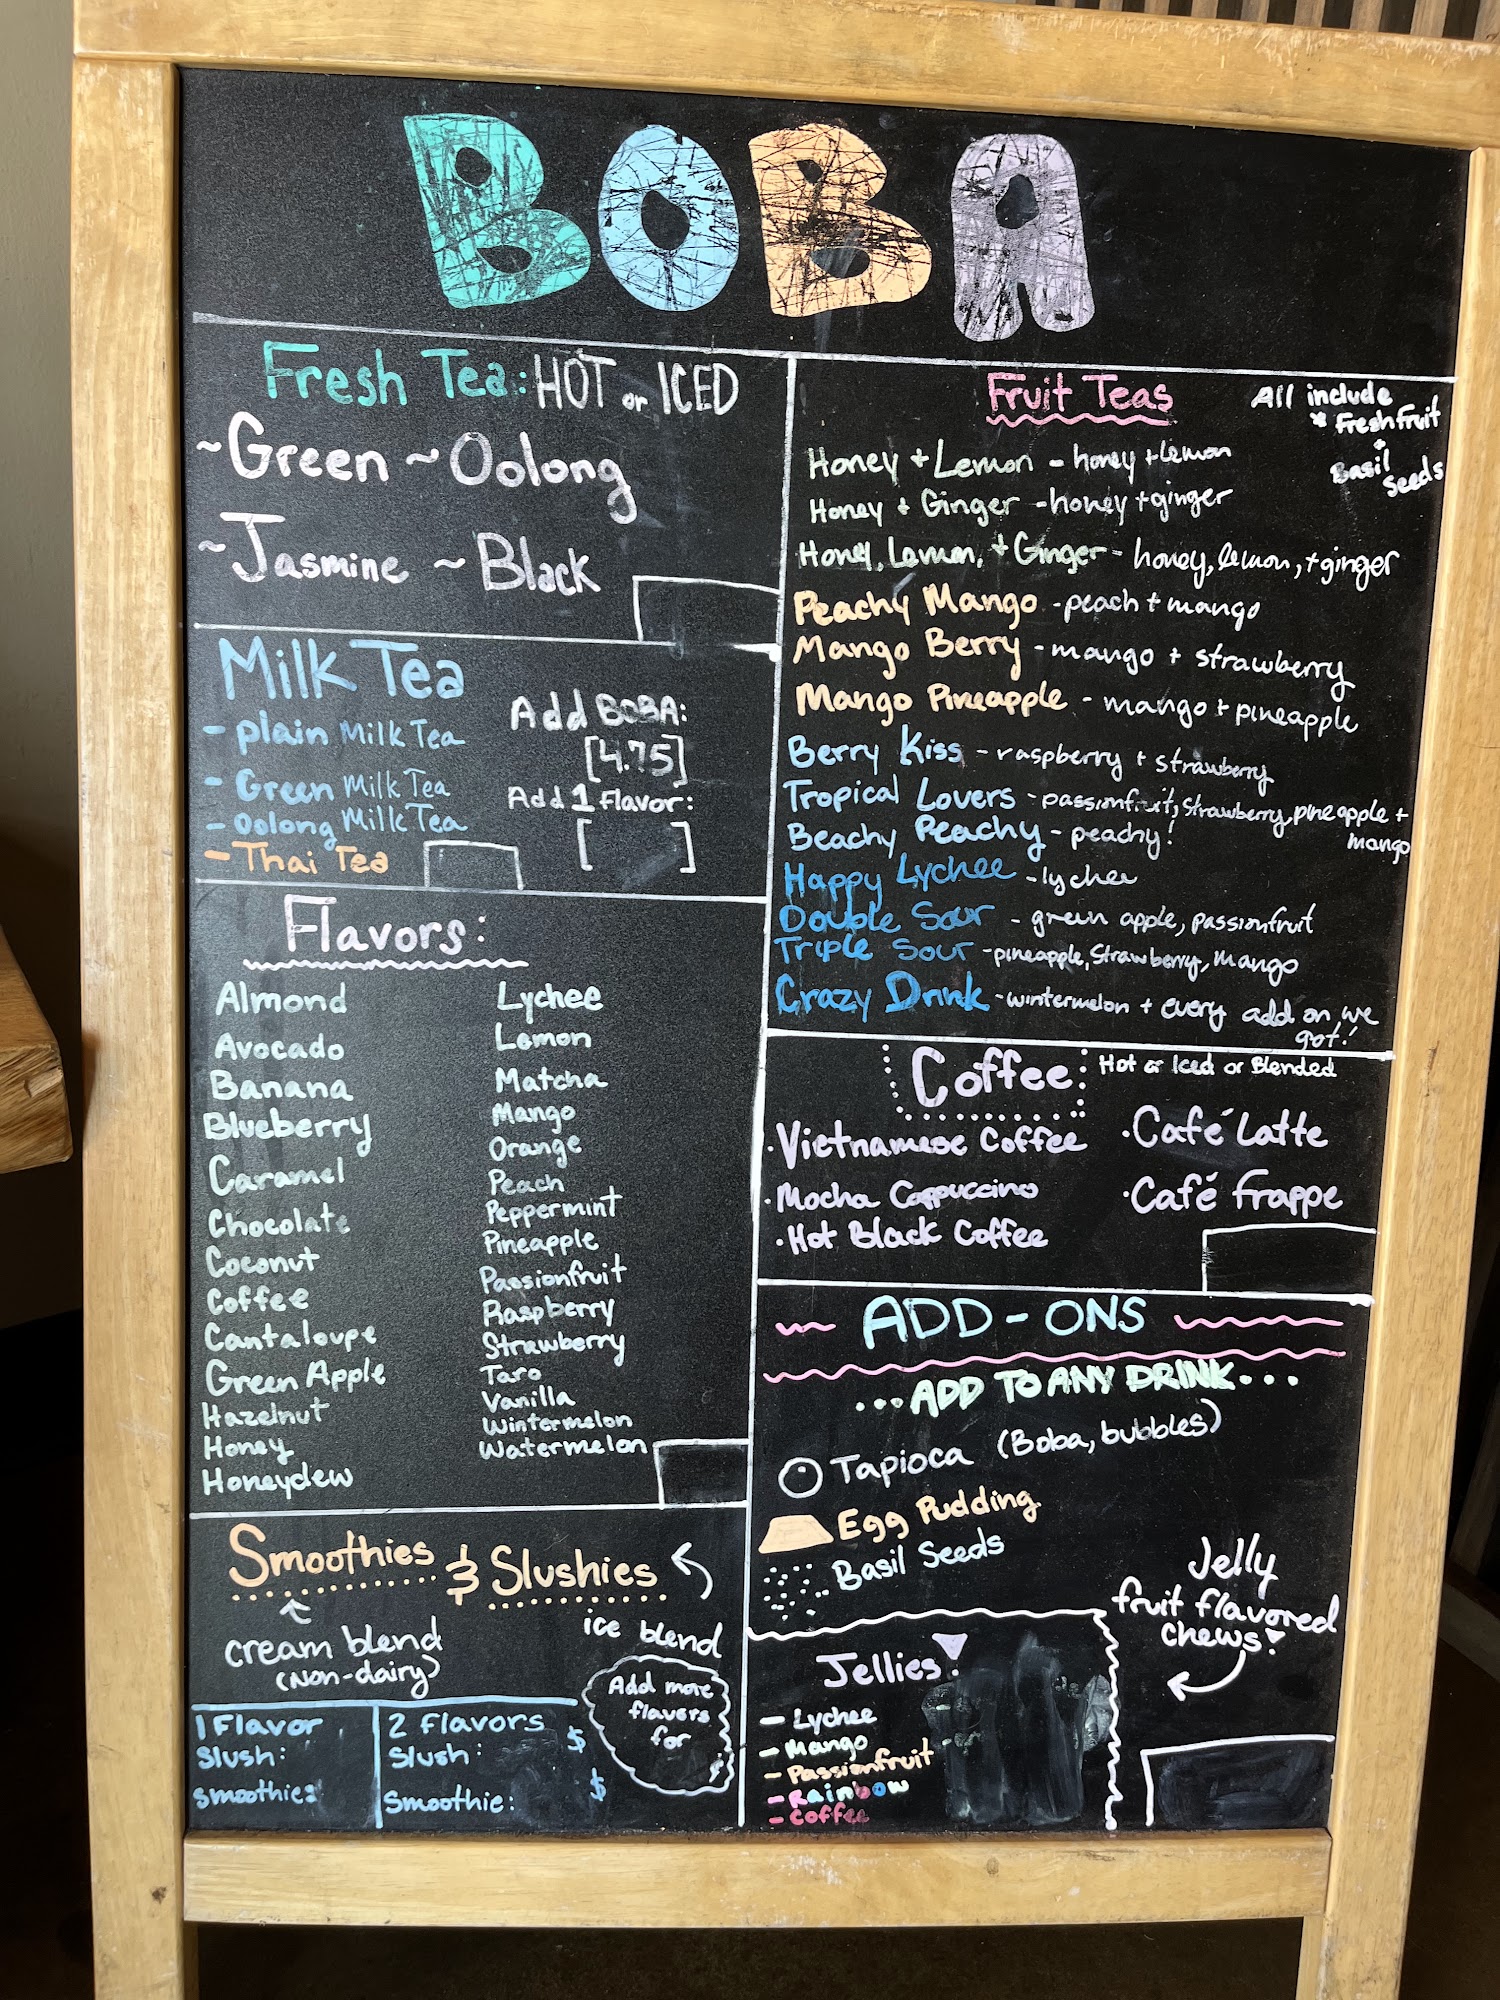 BOBA
Fresh Tea: HOT or ICED
~Green ~Oolong
~Jasmine ~Black
Milk Tea
- plain Milk Tea
- Green Milk Tea
- Oolong Milk Tea
- Thai Tea
Add BOBA:
[4.75]
Add 1 flavor:
[ ]
Flavors:
Almond
Avocado
Banana
Blueberry
Caramel
Chocolate
Coconut
Coffee
Cantaloupe
Green Apple
Hazelnut
Honey
Honeydew
Lychee
Lemon
Matcha
Mango
Orange
Peach
Peppermint
Pineapple
Passionfruit
Raspberry
Strawberry
Taro
Vanilla
Wintermelon
Watermelon
Smoothies & Slushies
cream blend
(non-dairy)
ice blend
1 Flavor
Slush:
smoothie:
2 flavors
Slush: $
Smoothie: $
Add more
flavors
for
$
Fruit Teas
All include
* Fresh fruit
+
Basil
Seeds
Honey + Lemon - honey + lemon
Honey + Ginger - honey + ginger
Honey, Lemon, + Ginger - honey, lemon, + ginger
Peachy Mango - peach + mango
Mango Berry - mango + strawberry
Mango Pineapple - mango + pineapple
Berry Kiss - raspberry + strawberry
Tropical Lovers - passionfruit, strawberry, pineapple +
mango
Beachy Peachy - peachy!
Happy Lychee - lychee
Double Sour - green apple, passionfruit
Triple Sour - pineapple, strawberry, mango
Crazy Drink - wintermelon + every add on we
got!
Coffee: Hot or Iced or Blended
· Vietnamese Coffee
· Mocha Cappuccino
· Hot Black Coffee
· Café Latte
· Café frappe
ADD-ONS
...ADD TO ANY DRINK...
Tapioca (Boba, bubbles)
Egg Pudding
Basil Seeds
Jelly
fruit flavored
chews
Jellies!
- Lychee
- Mango
- Passionfruit
- Rainbow
- Coffee